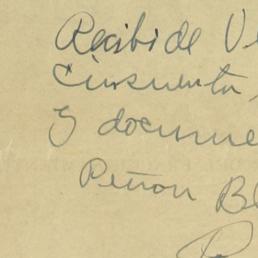 Recibi de Ve
Cinsuenta,
y docume
Petron Bl